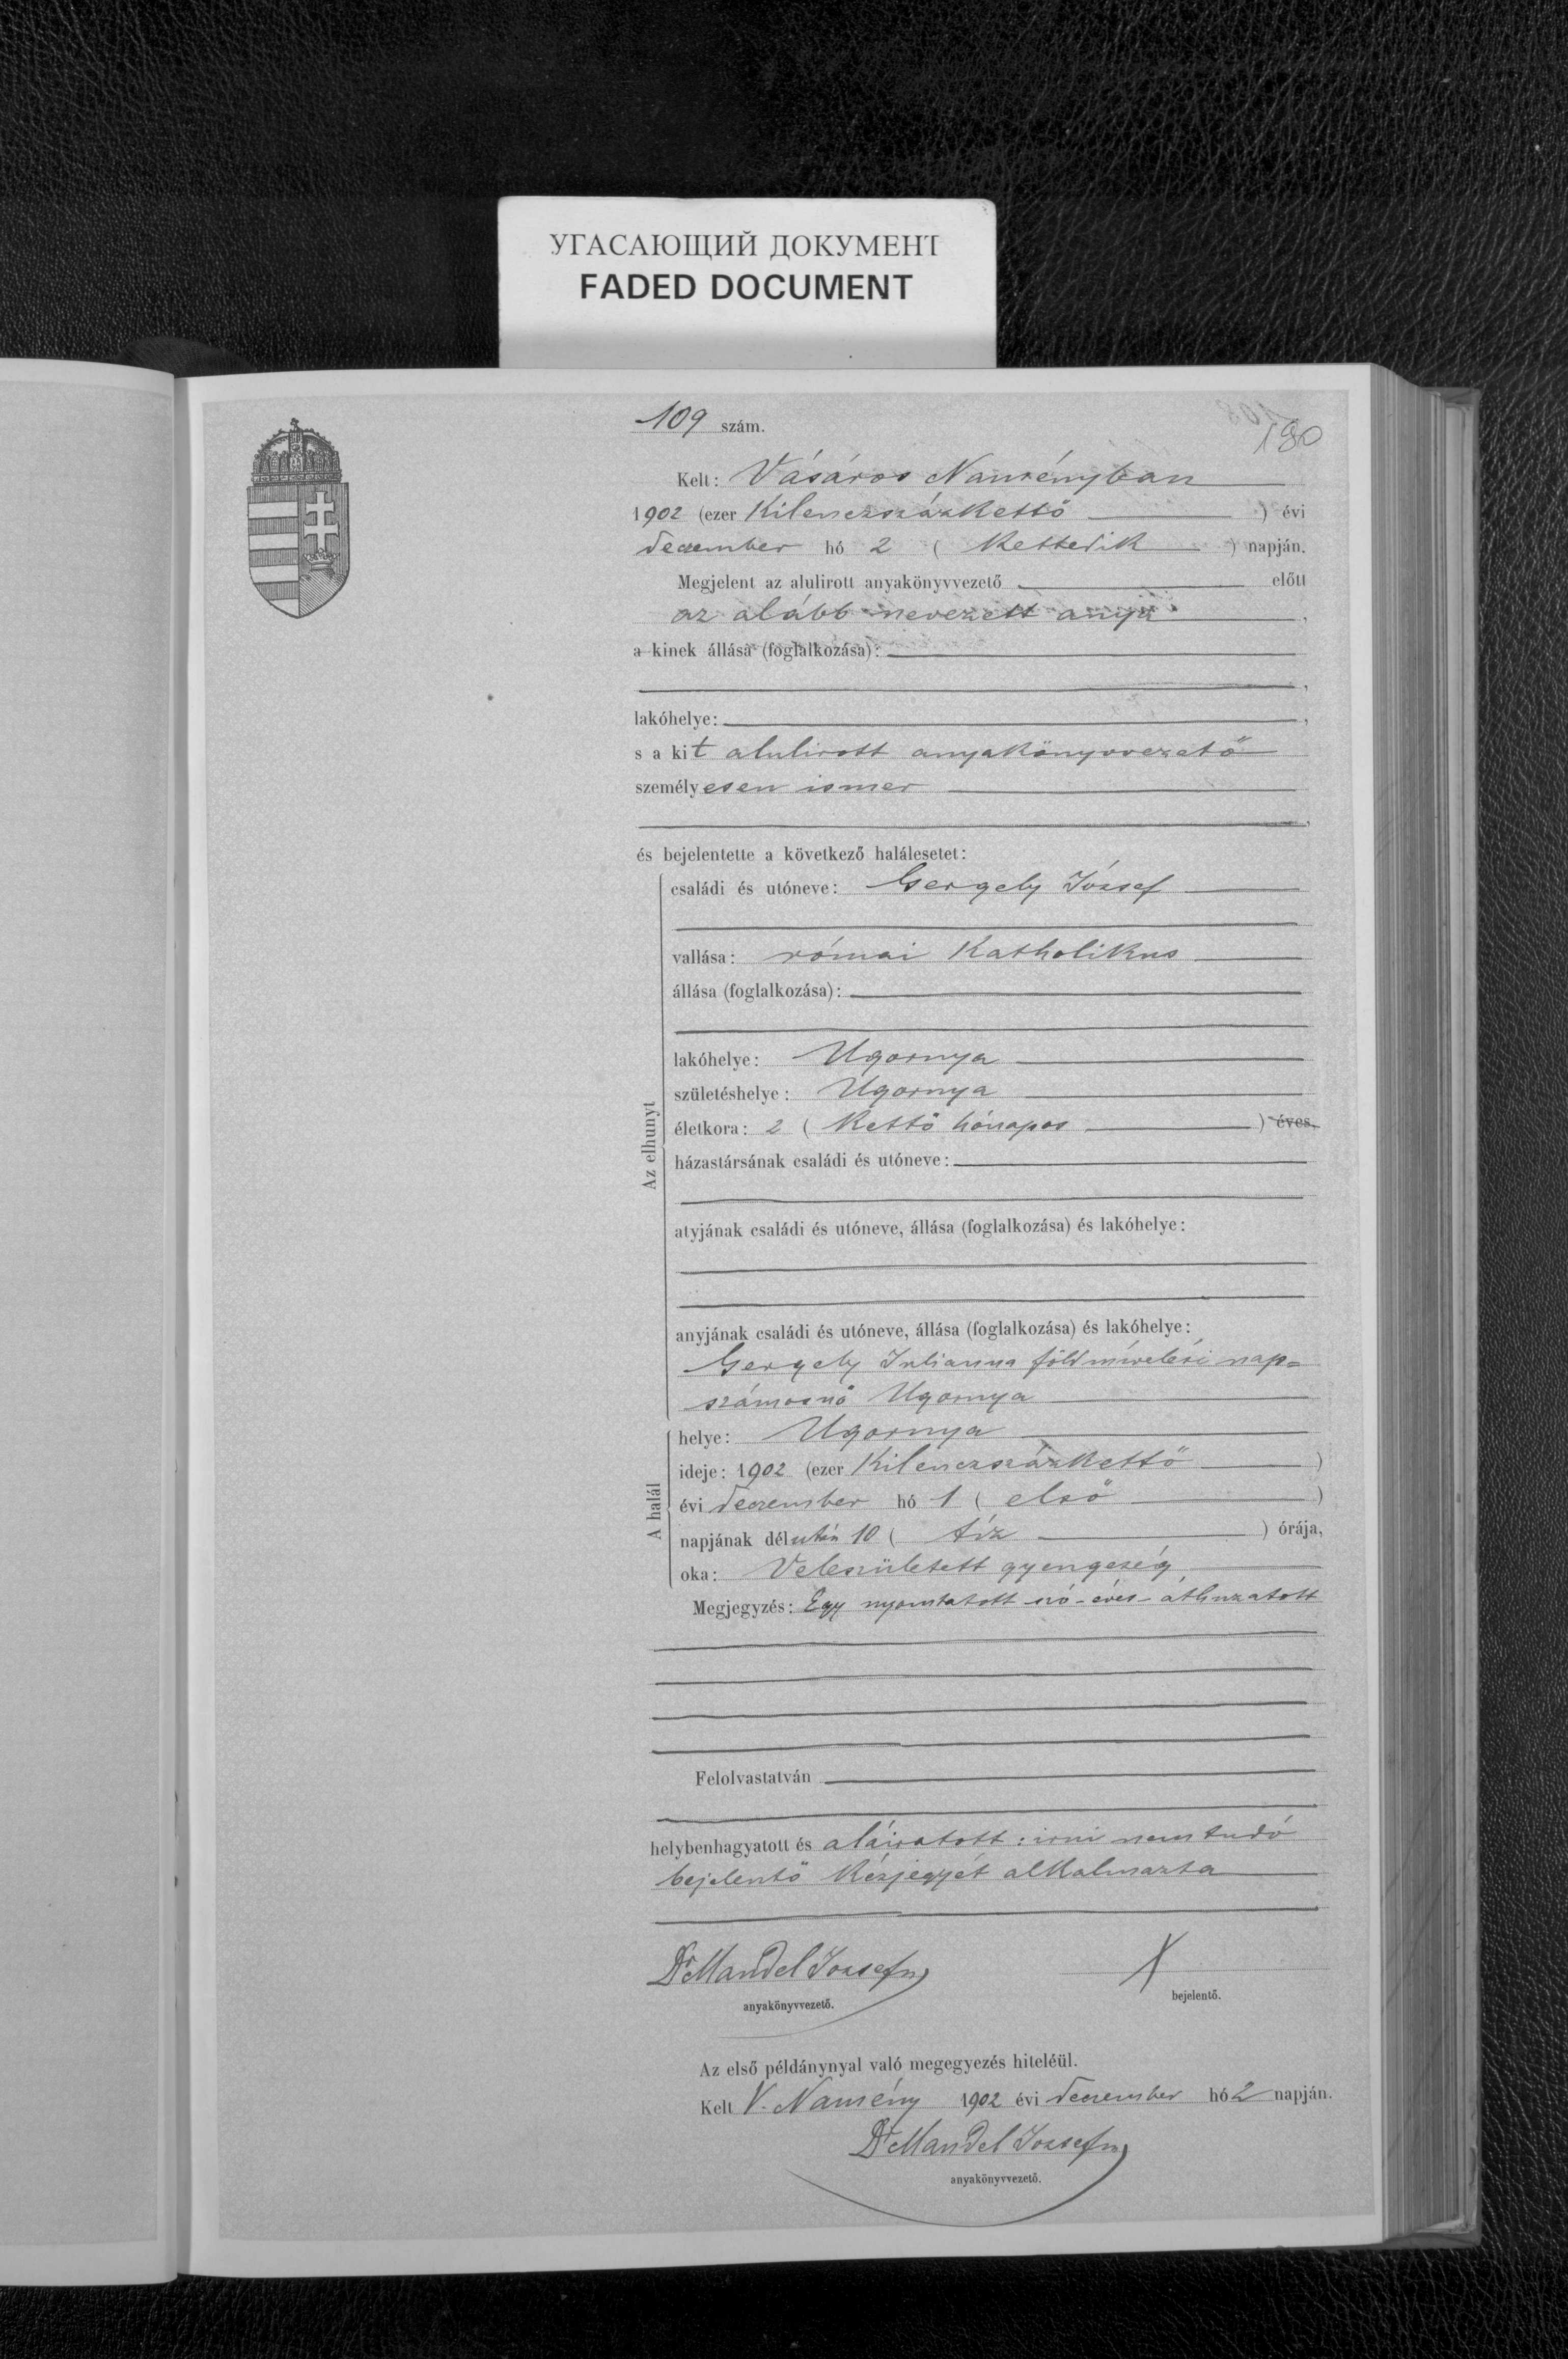 УГАСАЮЩИЙ ДОКУМЕНТ
FADED DOCUMENT
109 szám.
190
Kelt: Vásáros Naményban
1902 (ezer Kilenczszázkettő ) évi
deczember hó 2 ( kettedik ) napján.
Megjelent az alulirott anyakönyvvezető előtt
az alább nevezett anya ,
a kinek állása (foglalkozása):
,
lakóhelye: ,
s a kit alulirott anyakönyvvezető
személyesen ismer
,
és bejelentette a következő halálesetet:
Az elhunyt
családi és utóneve: Gergely József
vallása: római katholikus
állása (foglalkozása):
lakóhelye: Ugornya
születéshelye: Ugornya
életkora: 2 ( kettő hónapos ) éves.
házastársának családi és utóneve:
atyjának családi és utóneve, állása (foglalkozása) és lakóhelye:
anyjának családi és utóneve, állása (foglalkozása) és lakóhelye:
Gergely Julianna földmívelési nap=
számosnő Ugornya
A halál
helye: Ugornya
ideje: 1902 (ezer Kilenczszázkettő )
évi deczember hó 1 ( első )
napjának délután 10 ( tíz ) órája,
oka: Veleszületett gyengeség
Megjegyzés: Egy nyomtatott szó - éves - áthuzatott
Felolvastatván
helybenhagyatott és aláiratott: irni nem tudó
bejelentő kézjegyét alkalmazta
Dr Mandel József
X
anyakönyvvezető.
bejelentő.
Az első példánynyal való megegyezés hiteléül.
Kelt V. Namény 1902 évi deczember hó 2 napján.
Dr Mandel József
anyakönyvvezető.